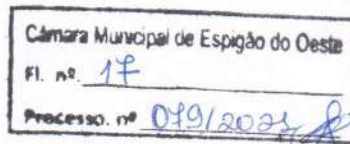 Câmara Municipal de Espigão do Oeste
Fl. nº 17
Processo. nº 079/2023